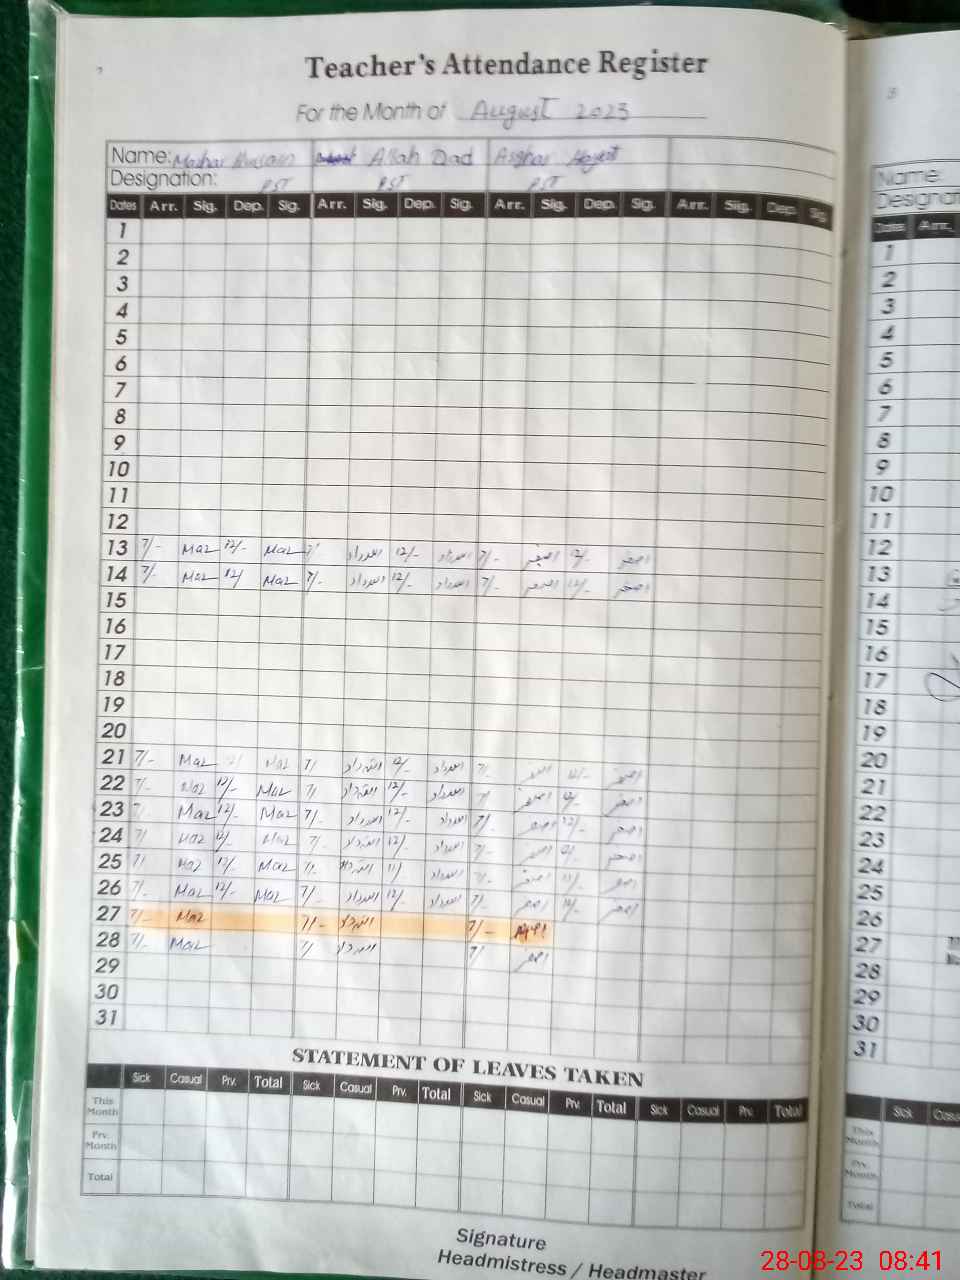 Teacher's Attendance Register
For the Month of August 2023
Name: Mazhar Hussain Allah Dad Asghar Hayat
Designation: PST PST PST
Dates Arr. Sig. Dep. Sig. Arr. Sig. Dep. Sig. Arr. Sig. Dep. Sig. Arr. Sig. Dep. Sig.
1
2
3
4
5
6
7
8
9
10
11
12
13 7/- Maz 12/- Maz 7/ اللہ داد 12/- اللہ داد 7/- اصغر 12/- اصغر
14 7/- Maz 12/ Maz 7/- اللہ داد 12/- اللہ داد 7/- اصغر 12/- اصغر
15
16
17
18
19
20
21 7/- Maz 12/ Maz 7/ اللہ داد 12/- اللہ داد 7/- اصغر 12/- اصغر
22 7/- Maz 12/- Maz 7/ اللہ داد 12/- اللہ داد 7/ اصغر 12/- اصغر
23 7/ Maz 12/- Maz 7/- اللہ داد 12/- اللہ داد 7/- اصغر 12/- اصغر
24 7/ Maz 12/- Maz 7/- اللہ داد 12/- اللہ داد 7/- اصغر 12/- اصغر
25 7/ Maz 12/- Maz 7/- اللہ داد 11/ اللہ داد 7/- اصغر 11/- اصغر
26 7/- Maz 12/- Maz 7/- اللہ داد 12/- اللہ داد 7/- اصغر 12/- اصغر
27 7/- Maz 7/- اللہ داد 7/-
28 7/- Maz 7/ اللہ داد 7/ اصغر
29
30
31
STATEMENT OF LEAVES TAKEN
Sick Casual Prv. Total Sick Casual Prv. Total Sick Casual Prv. Total Sick Casual Prv. Total
This Month
Prv. Month
Total
Signature
Headmistress / Headmaster
8
Name:
Designat
Dates Arr.
1
2
3
4
5
6
7
8
9
10
11
12
13
14
15
16
17
18
19
20
21
22
23
24
25
26
27
28
29
30
31
Sick Casu
This Month
Prv. Month
Total
28-08-23 08:41